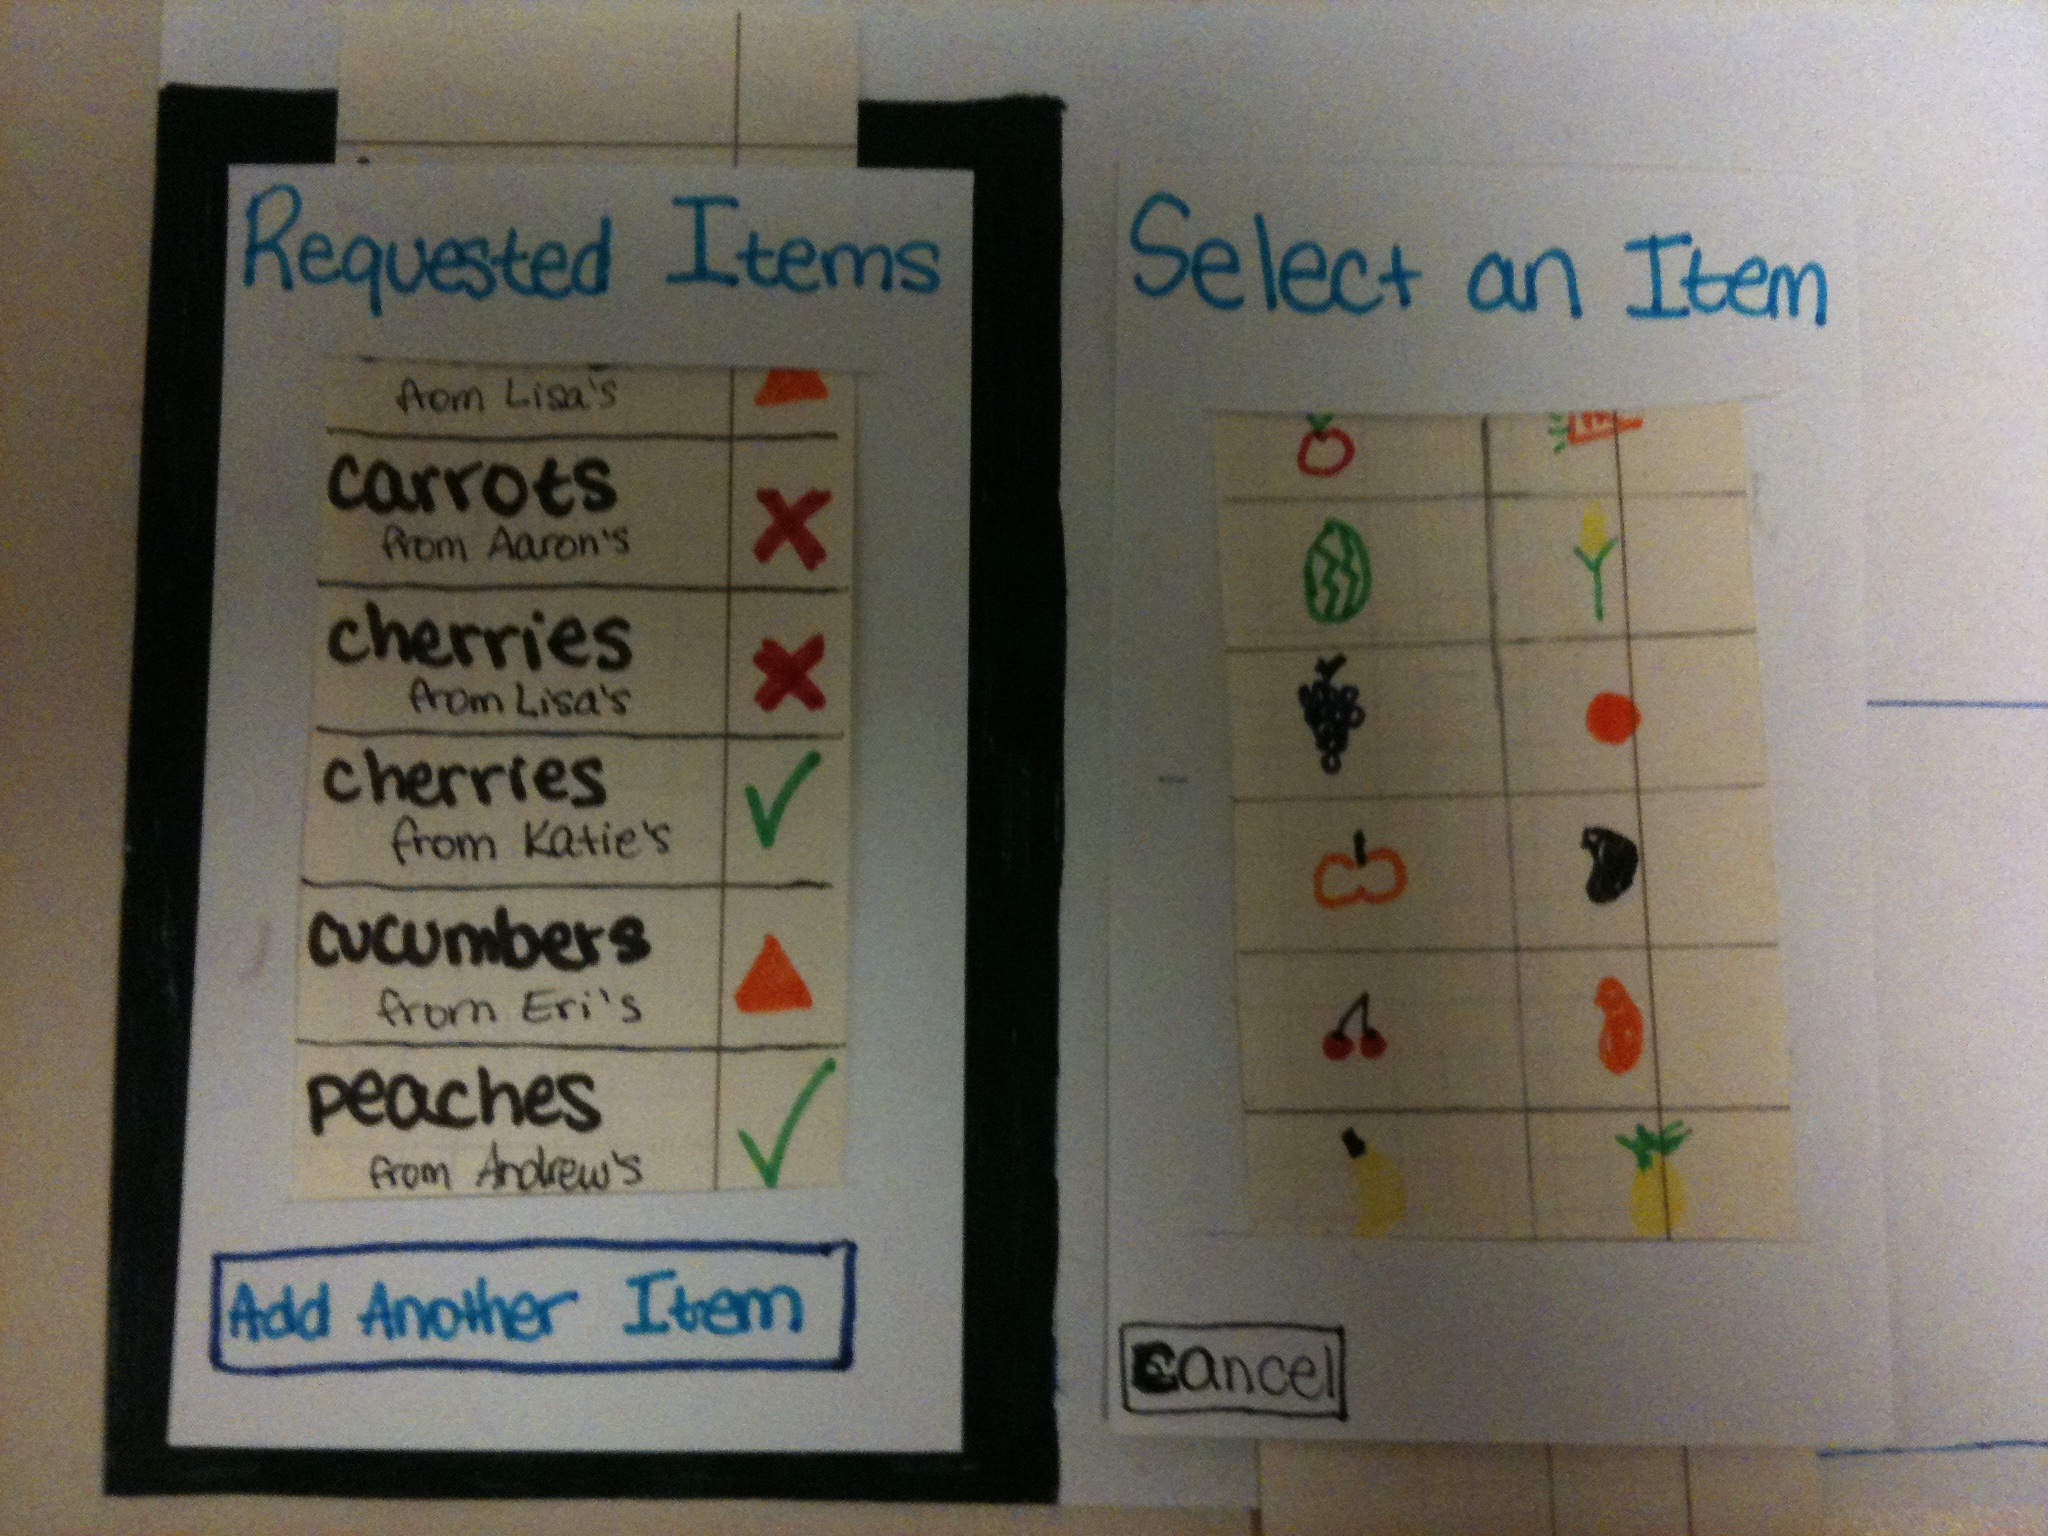 Requested Items
from Lisa's
carrots
from Aaron's
cherries
from Lisa's
cherries
from Katie's
cucumbers
from Eri's
peaches
from Andrew's
Add Another Item
Select an Item
Cancel